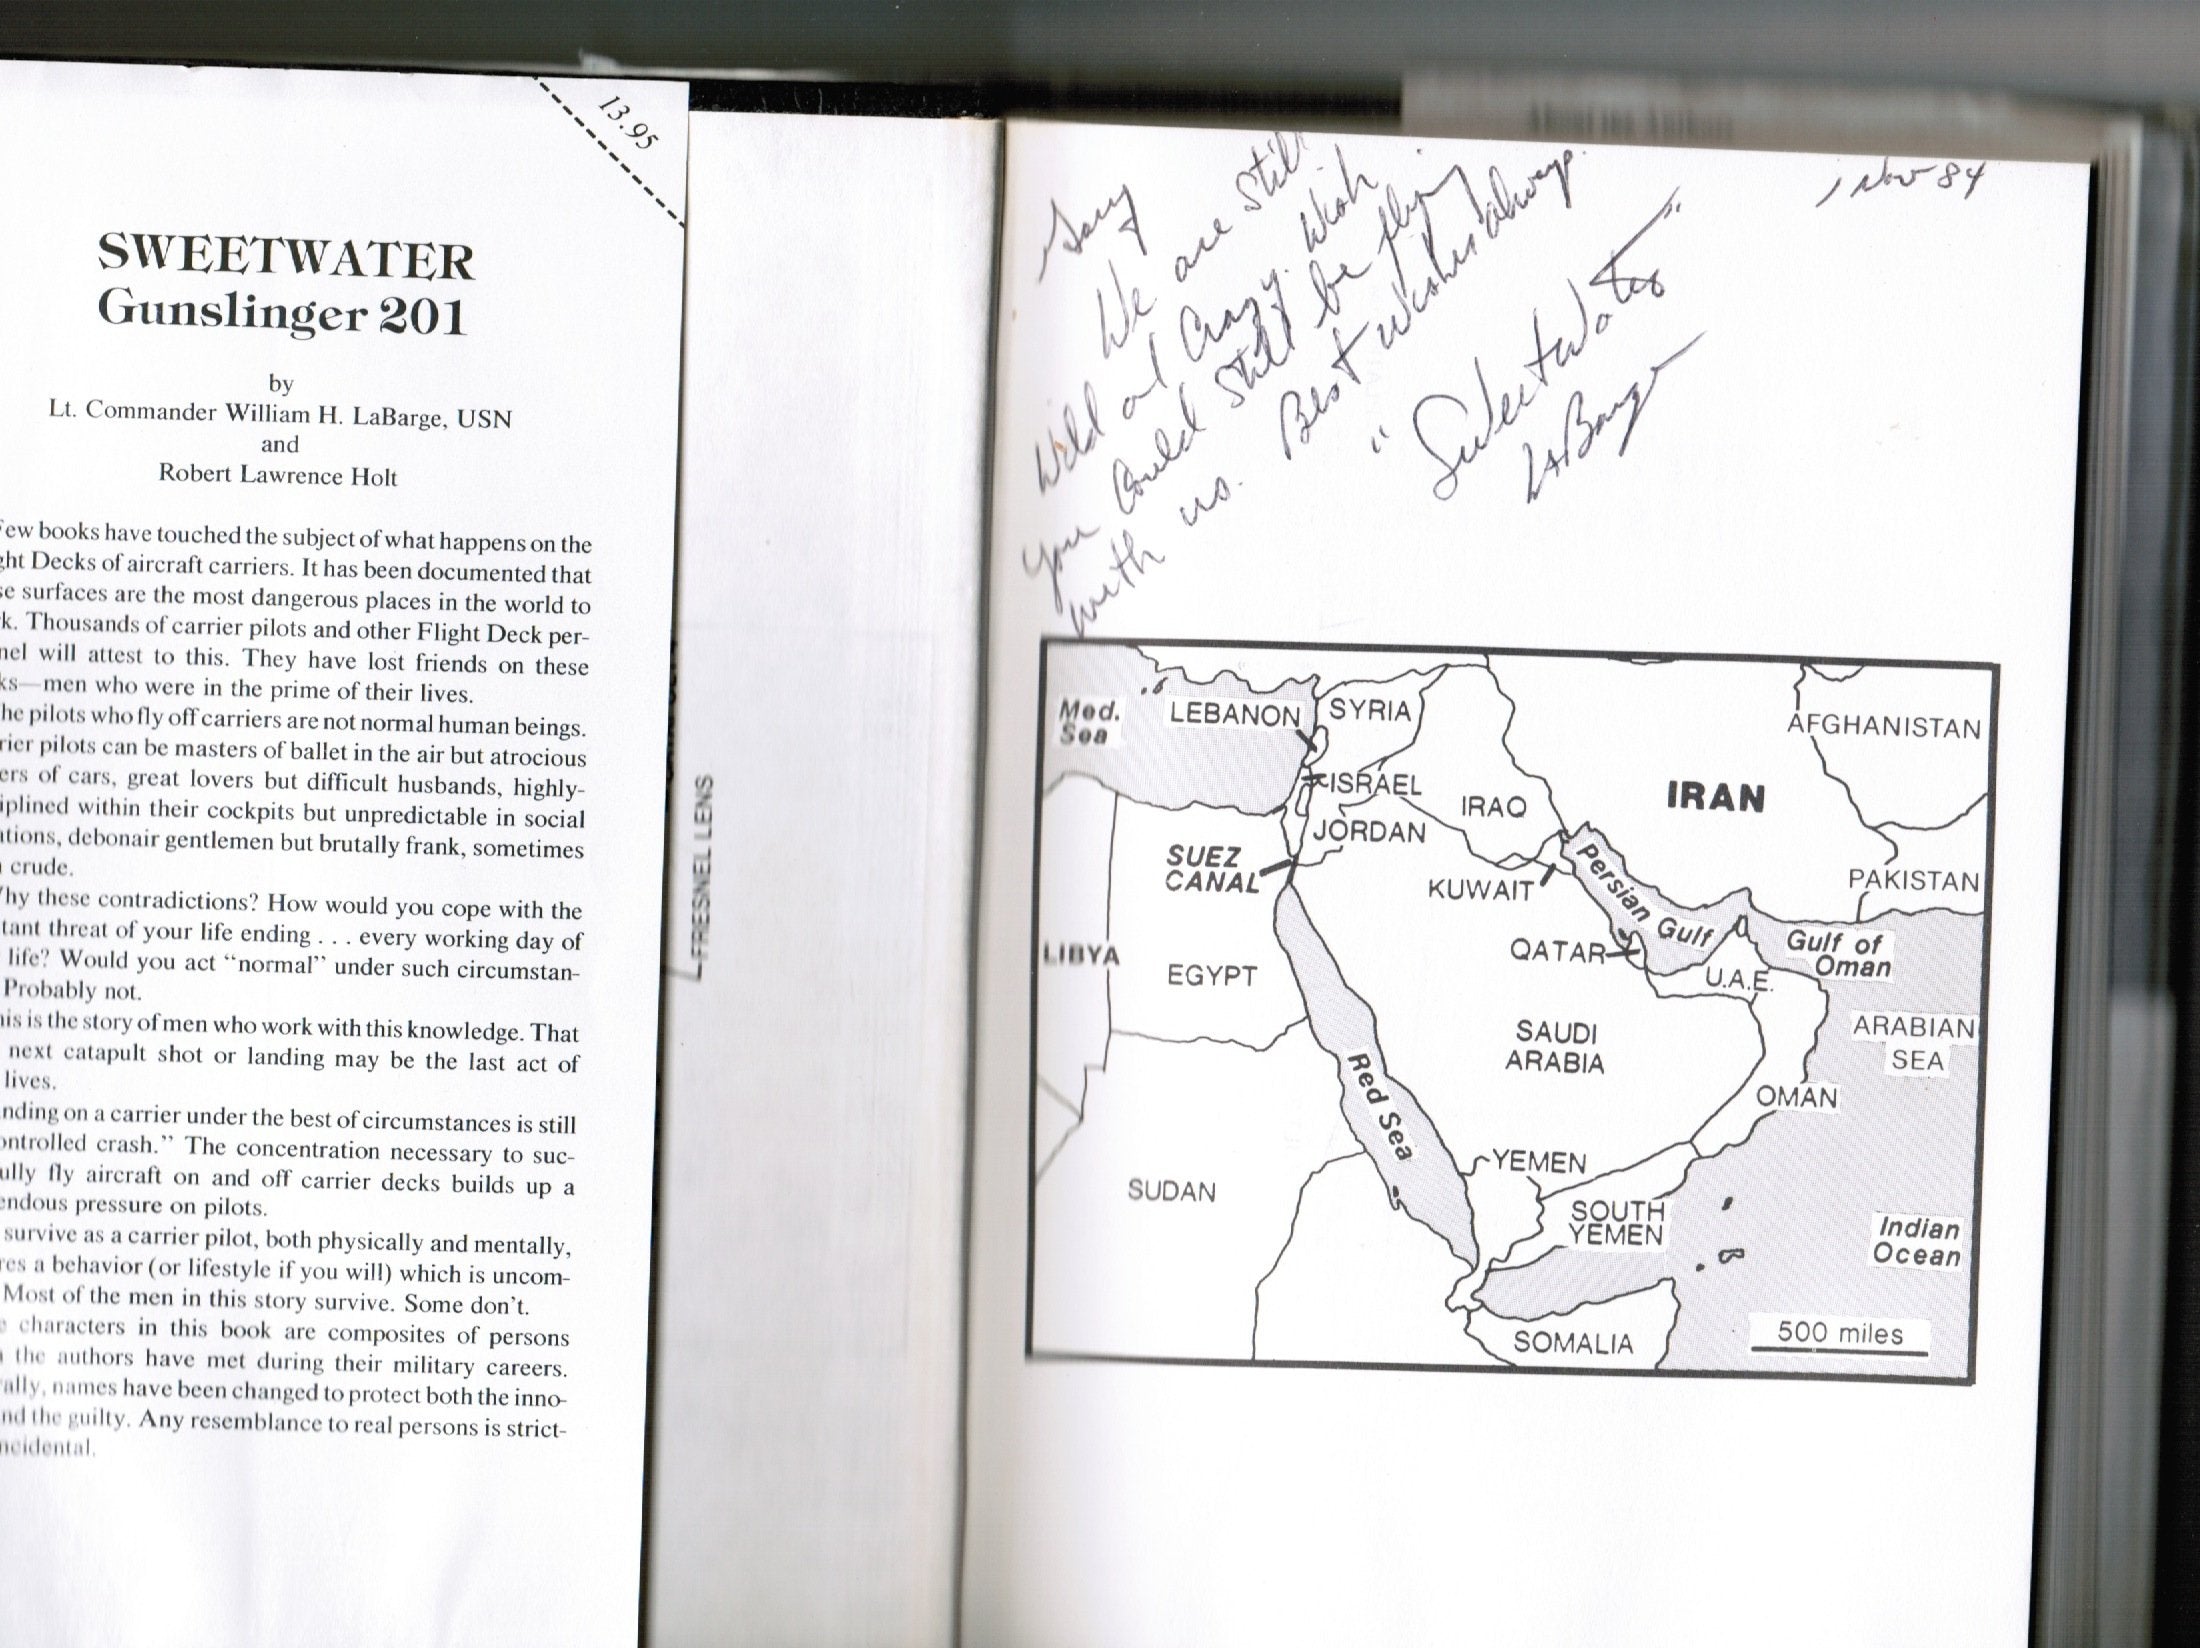 13.95
SWEETWATER
Gunslinger 201
by
Lt. Commander William H. LaBarge, USN
and
Robert Lawrence Holt
Few books have touched the subject of what happens on the
Decks of aircraft carriers. It has been documented that
surfaces are the most dangerous places in the world to
Thousands of carrier pilots and other Flight Deck per-
will attest to this. They have lost friends on these
—men who were in the prime of their lives.
pilots who fly off carriers are not normal human beings.
pilots can be masters of ballet in the air but atrocious
of cars, great lovers but difficult husbands, highly-
within their cockpits but unpredictable in social
debonair gentlemen but brutally frank, sometimes
crude.
these contradictions? How would you cope with the
threat of your life ending . . . every working day of
life? Would you act “normal” under such circumstan-
Probably not.
is the story of men who work with this knowledge. That
next catapult shot or landing may be the last act of
lives.
on a carrier under the best of circumstances is still
crash.” The concentration necessary to suc-
fly aircraft on and off carrier decks builds up a
pressure on pilots.
survive as a carrier pilot, both physically and mentally,
a behavior (or lifestyle if you will) which is uncom-
Most of the men in this story survive. Some don't.
characters in this book are composites of persons
the authors have met during their military careers.
names have been changed to protect both the inno-
the guilty. Any resemblance to real persons is strict-
FRESNEL LENS
1 Nov 84
We are still
wild and crazy. Wish
you could still be flying
with us. Best wishes always.
"Sweetwater"
LaBarge
Med.
Sea
LEBANON
SYRIA
AFGHANISTAN
ISRAEL
IRAQ
IRAN
JORDAN
SUEZ
CANAL
KUWAIT
Persian Gulf
PAKISTAN
LIBYA
EGYPT
QATAR
U.A.E.
Gulf of
Oman
SAUDI
ARABIA
ARABIAN
SEA
Red Sea
OMAN
SUDAN
YEMEN
SOUTH
YEMEN
Indian
Ocean
SOMALIA
500 miles